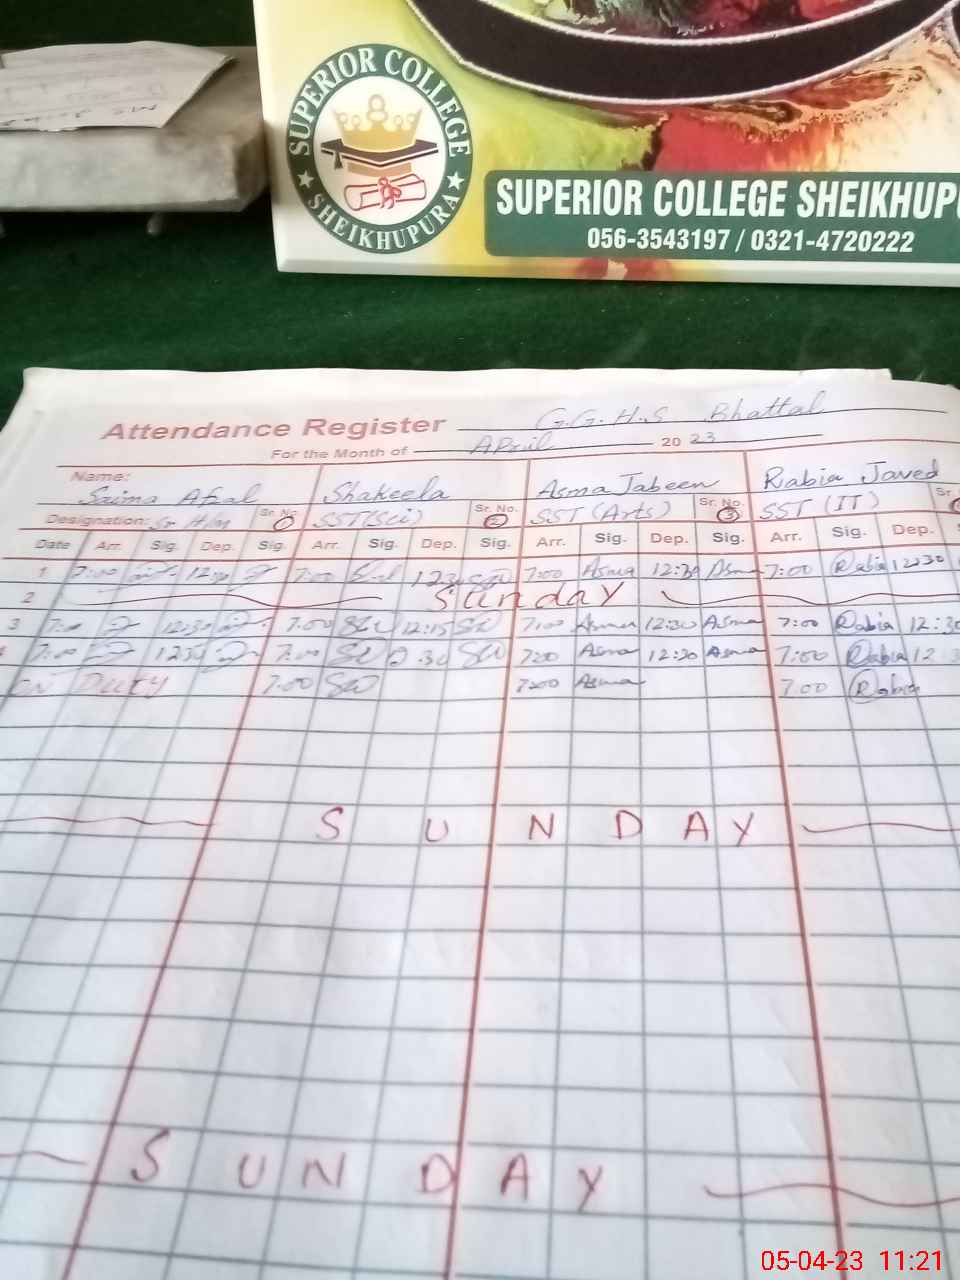 SUPERIOR COLLEGE
SHEIKHUPURA
SUPERIOR COLLEGE SHEIKHUPU
056-3543197 / 0321-4720222
Attendance Register G.G.H.S Bhattal
For the Month of April 2023
Name: Saima Afzal Shakeela Asma Jabeen Rabia Javed
Designation: Sr H/M Sr. No. 1 SST(Sci) Sr. No. 2 SST (Arts) Sr. No. 3 SST (IT) Sr.
Date Arr. Sig. Dep. Sig. Arr. Sig. Dep. Sig. Arr. Sig. Dep. Sig. Arr. Sig. Dep.
1 7:00 7:00 7:00 Asma 12:30 Asma 7:00 Rabia 12:30
2 Sunday
3 7:00 12:30 7:00 12:15 7:00 Asma 12:30 Asma 7:00 Rabia 12:30
4 7:00 1230 7:00 7:00 Asma 12:30 Asma 7:00 Rabia 12:3
ON DUTY 7:00 7:00 Asma 7:00 Rabia
SUNDAY
SUNDAY
05-04-23 11:21